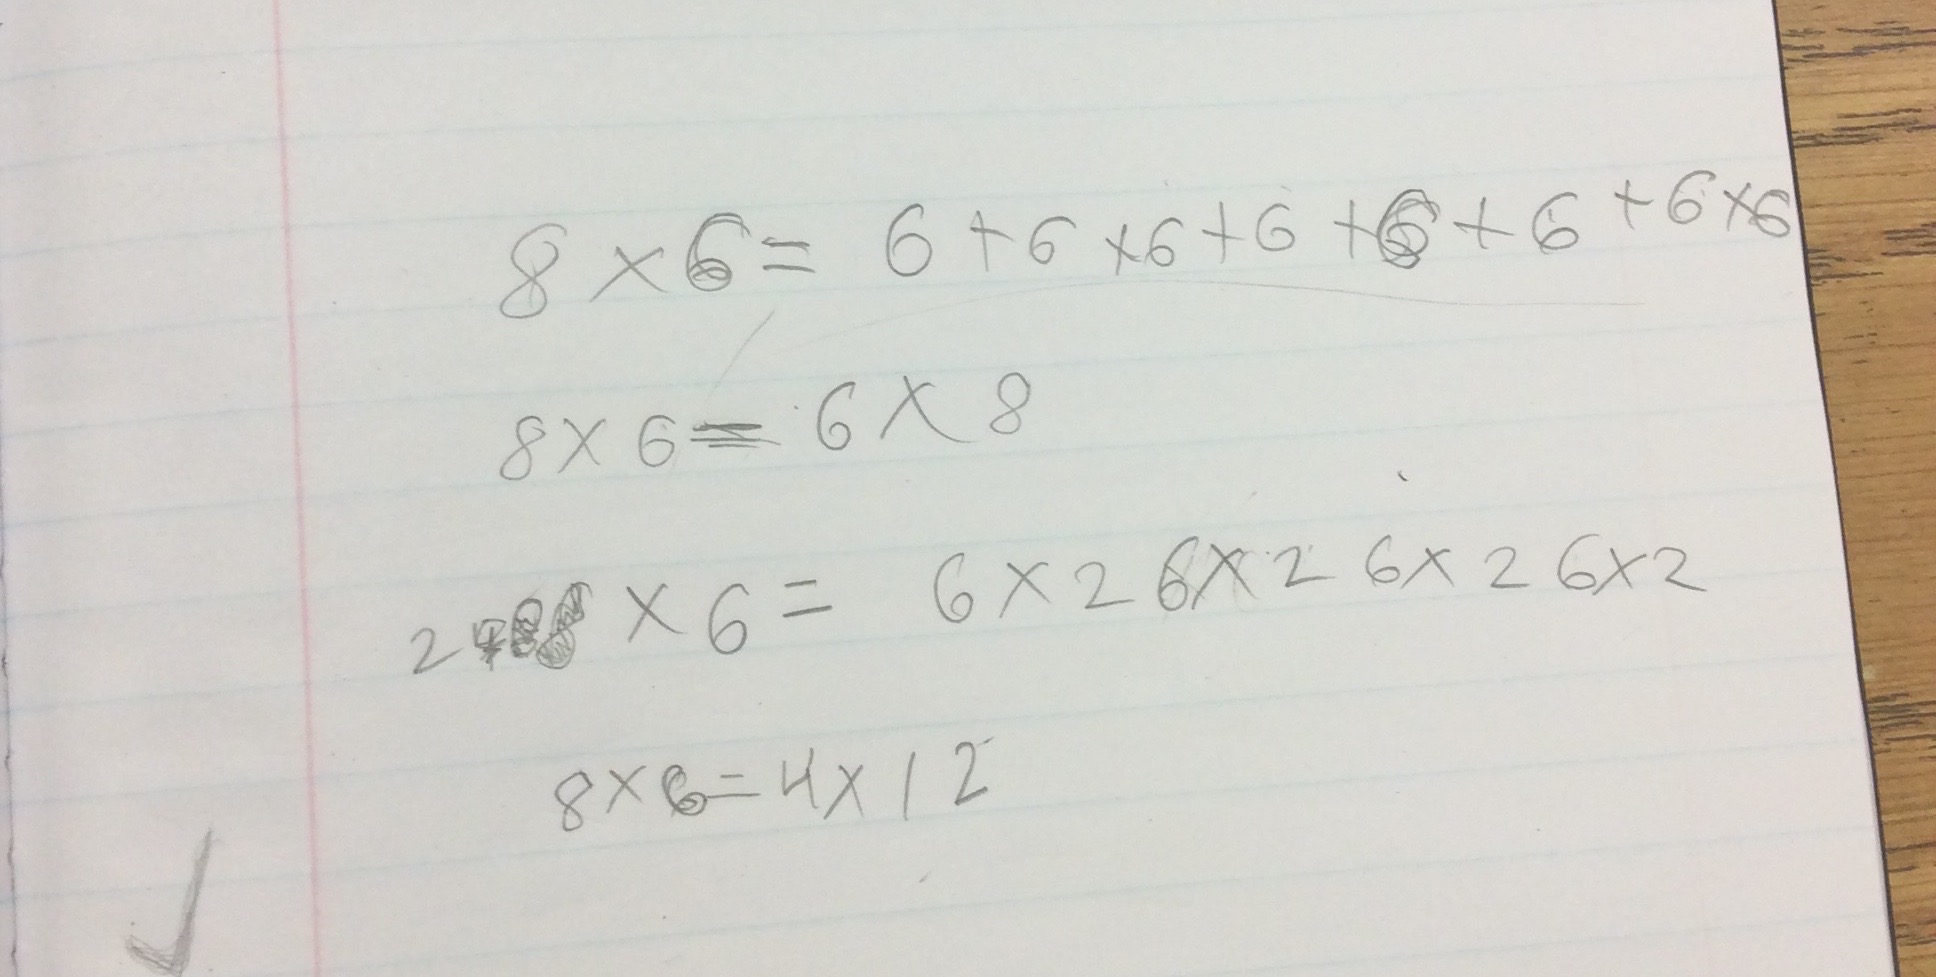 8 × 6 = 6 + 6 × 6 + 6 + 6 + 6 + 6 × 6
8 × 6 = 6 × 8
2 × 6 = 6 × 2 6 × 2 6 × 2 6 × 2
8 × 6 = 4 × 12